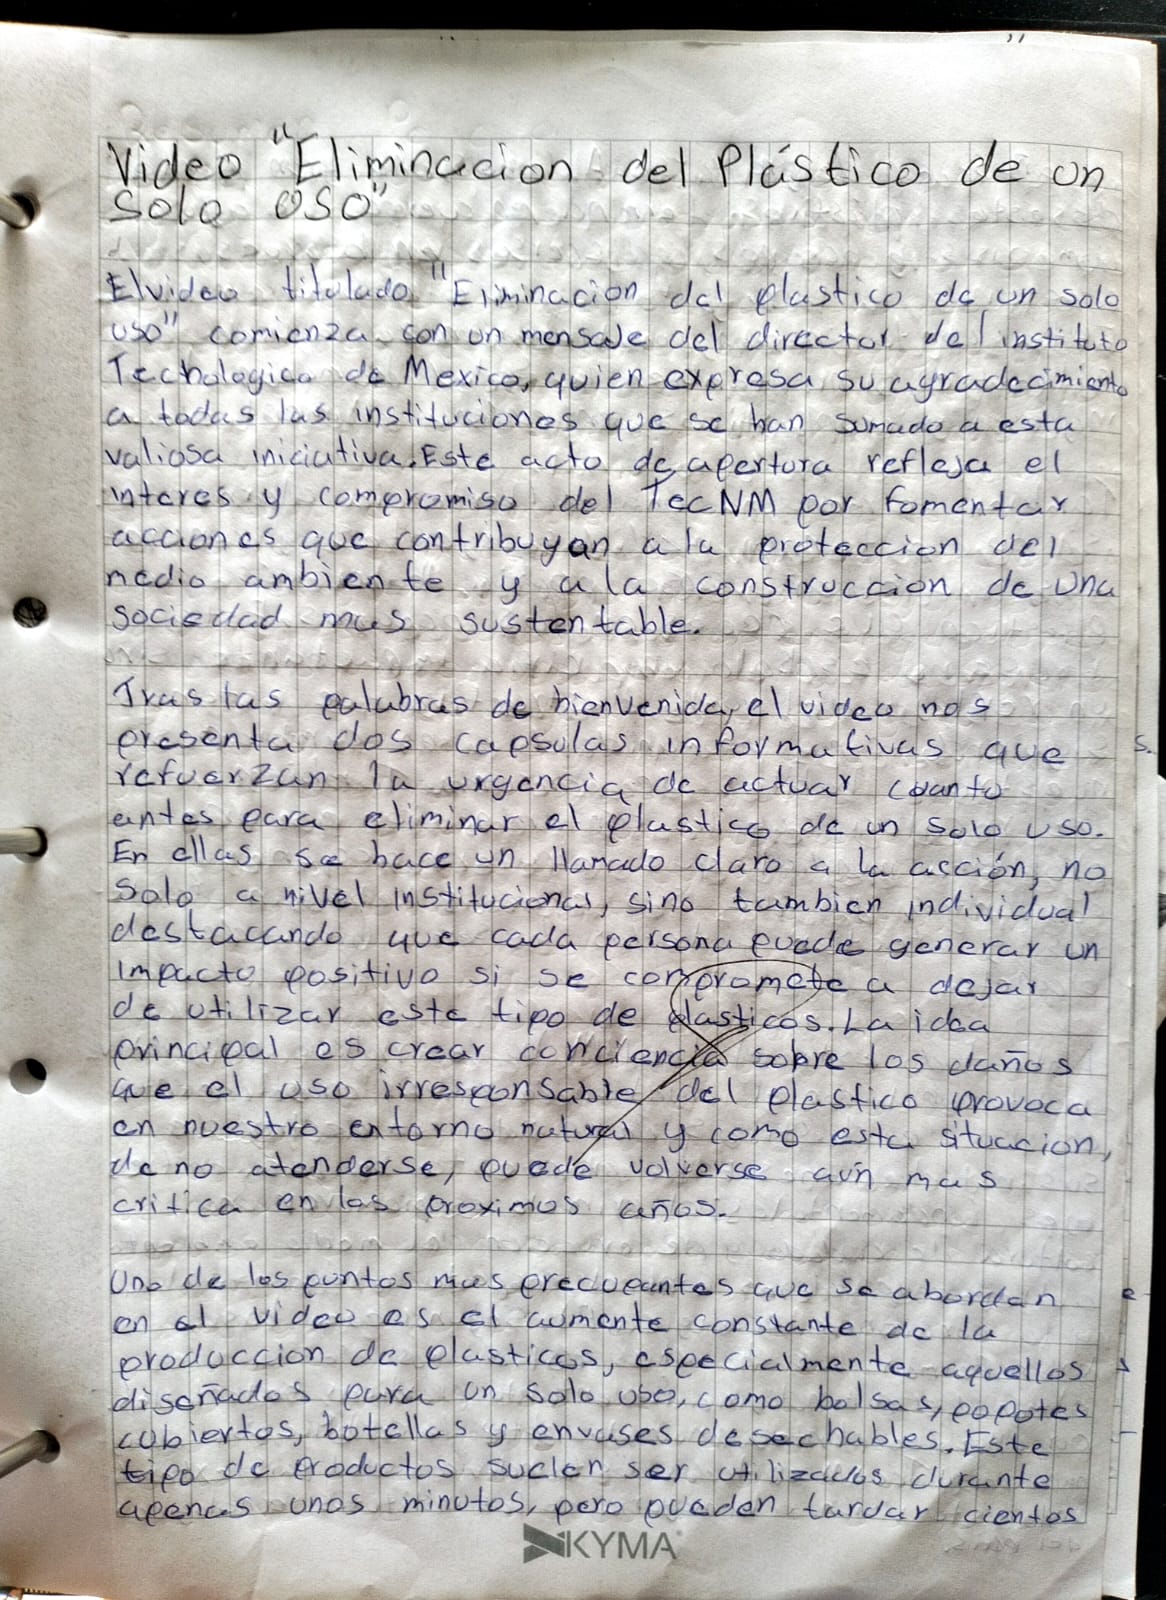 Video "Eliminacion del Plástico de un
Solo USO"
El video titulado "Eliminacion del plastico de un solo
uso" comienza con un mensaje del director del instituto
Tecnologico de Mexico, quien expresa su agradecimiento
a todas las instituciones que se han sumado a esta
valiosa iniciativa. Este acto de apertura refleja el
interes y compromiso del TecNM por fomentar
acciones que contribuyan a la proteccion del
medio ambiente y a la construccion de una
sociedad mas sustentable.
Tras las palabras de bienvenida, el video nos
presenta dos capsulas informativas que
refuerzan la urgencia de actuar cuanto
antes para eliminar el plastico de un solo uso.
En ellas se hace un llamado claro a la acción, no
solo a nivel institucional, sino tambien individual
destacando que cada persona puede generar un
impacto positivo si se compromete a dejar
de utilizar este tipo de plasticos. La idea
principal es crear conciencia sobre los daños
que el uso irresponsable del plastico provoca
en nuestro entorno natural y como esta situacion,
de no atenderse, puede volverse aún mas
critica en los proximos años.
Uno de los puntos mas precupantes que se abordan
en el video es el aumente constante de la
produccion de plasticos, especialmente aquellos
diseñados para un solo uso, como bolsas, popotes
cubiertos, botellas y envases desechables. Este
tipo de productos suelen ser utilizados durante
apenas unos minutos, pero pueden tardar cientos
KYMA